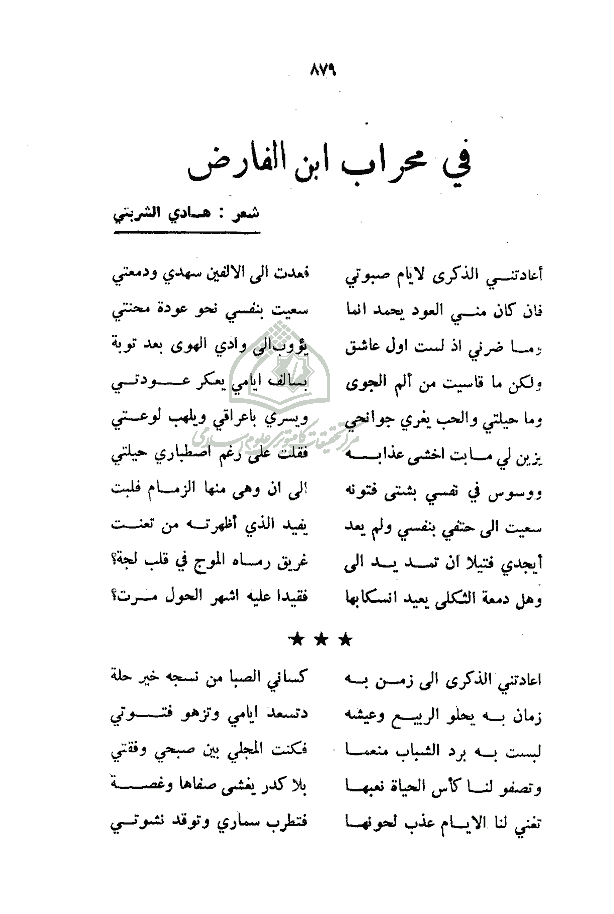 ٨٧٩
في محراب ابن الفارض
شعر : هادي الشربتي
أعادتني الذكرى لايام صبوتي فعدت الى الالفين سهدي ودمعتي
فان كان مني العود يحمد انما سعيت بنفسي نحو عودة محنتي
وما ضرني اذ لست اول عاشق يؤوب الى وادي الهوى بعد توبة
ولكن ما قاسيت من ألم الجوى بسالف ايامي يعكر عودتي
وما حيلتي والحب يغري جوانحي ويسري باعراقي ويلهب لوعتي
يزين لي ما بت اخشى عذابه فقلت على رغم اصطباري حيلتي
ووسوس في نفسي بشتى فتونه الى ان وهى منها الزمام فلبت
سعيت الى حتفي بنفسي ولم يعد يفيد الذي أظهرته من تعنت
أيجدي فتيلا ان تمد يد الى غريق رماه الموج في قلب لجة؟
وهل دمعة الثكلى يعيد انسكابها فقيدا عليه اشهر الحول مرت؟
★ ★ ★
اعادتني الذكرى الى زمن به كساني الصبا من نسجه خير حلة
زمان به يحلو الربيع وعيشه دتسعد ايامي وتزهو فتوتي
لبست به برد الشباب منعما فكنت المجلي بين صبحي وفقتي
وتصفو لنا كأس الحياة نعبها بلا كدر يغشى صفاها وغصة
تغني لنا الايام عذب لحونها فتطرب سماري وتوقد نشوتي